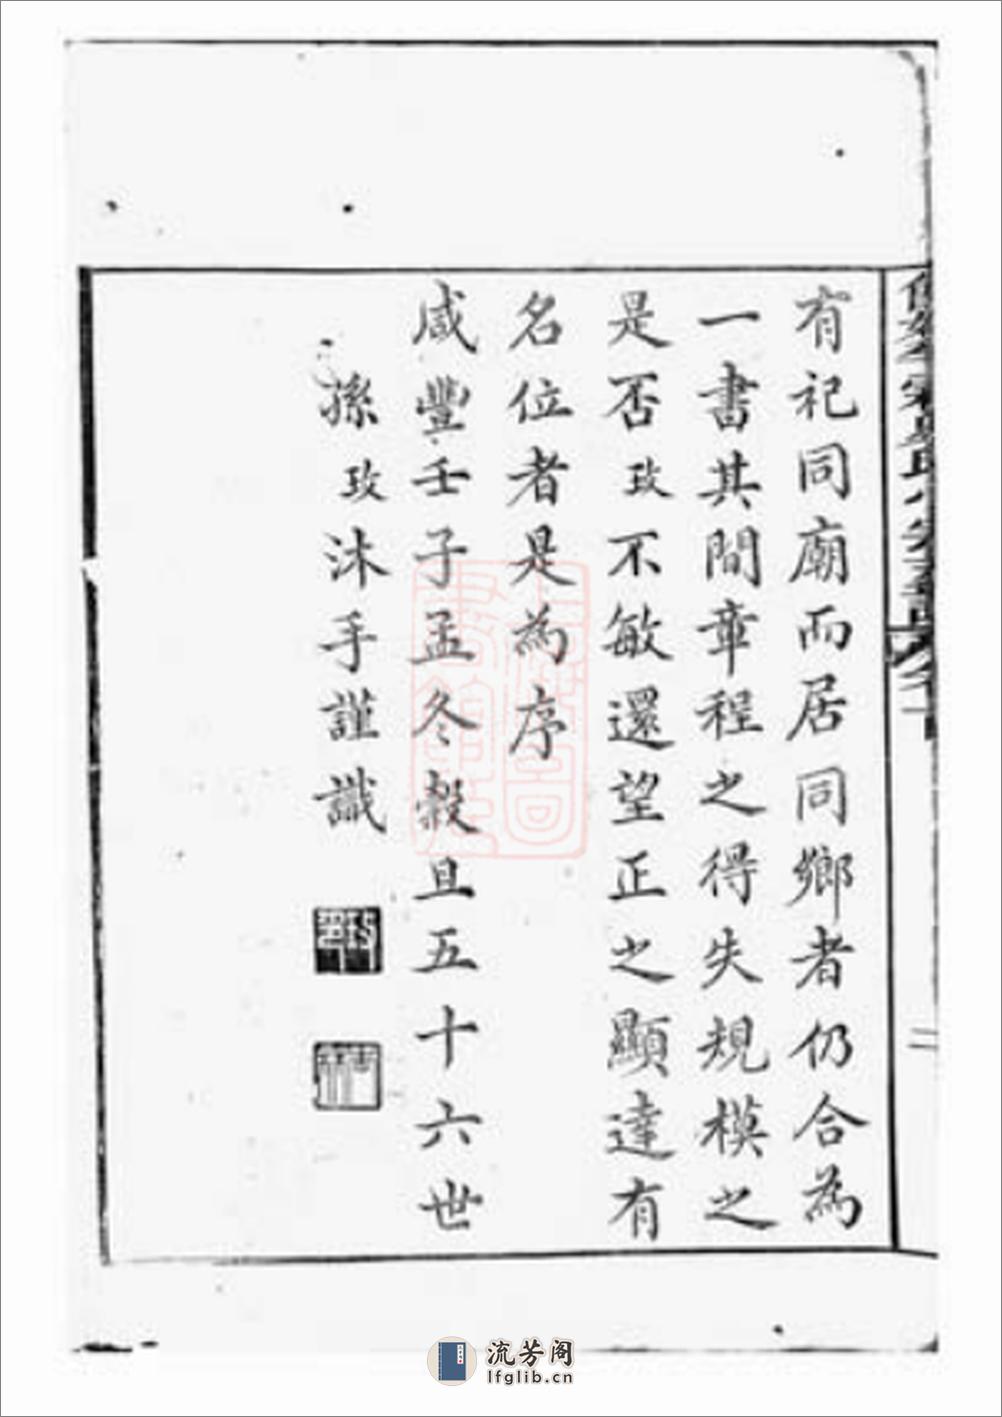 有祀同廟而居同鄉者仍合為
一書其間章程之得失規模之
是否玫不敏還望正之顯達有
名位者是為序
咸豐壬子孟冬穀旦五十六世
孫玫沐手謹識
二
流芳阁
lfglib.cn